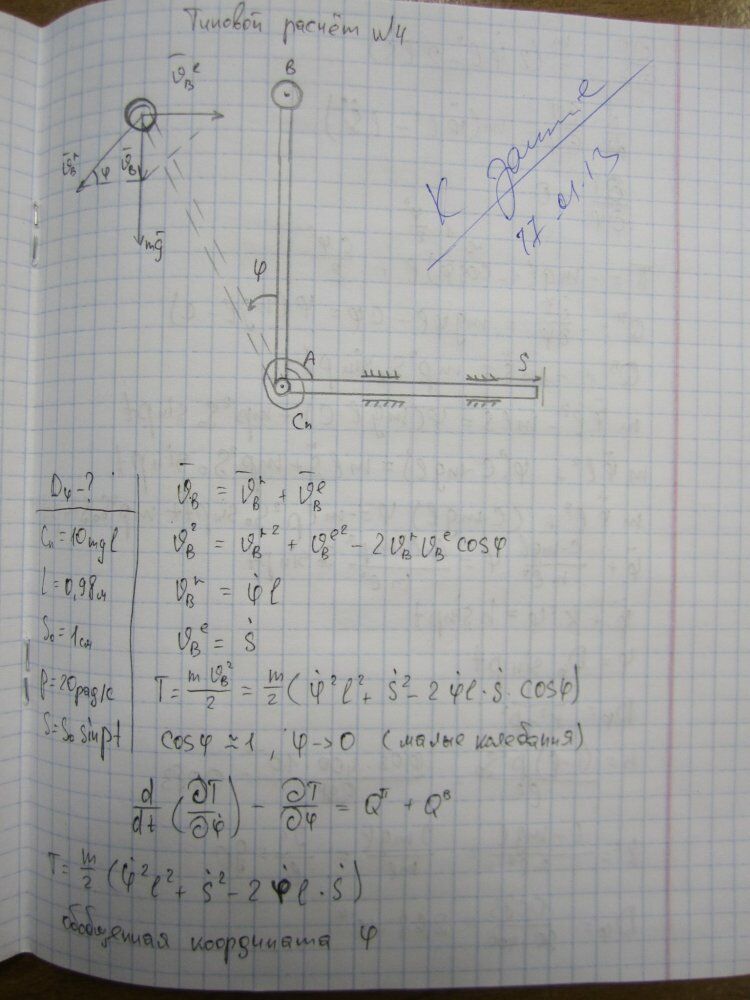 Типовой расчёт №4
К защите
17.01.13
v̄_B^e
B
v̄_B^r
φ
v̄_B
mḡ
φ
A
S
Cп
D_φ - ?
Cп = 10mgl
l = 0,98 м
S₀ = 1 см
p = 20 рад/с
S = S₀ sin pt
v̄_B = v̄_B^r + v̄_B^e
v_B² = v_B^r² + v_B^e² - 2 v_B^r v_B^e cosφ
v_B^r = φ̇ l
v_B^e = ṡ
T = m v_B²/2 = m/2 (φ̇² l² + ṡ² - 2 φ̇ l · ṡ · cosφ)
cosφ ≈ 1, φ → 0 (малые колебания)
d/dt (∂T/∂φ̇) - ∂T/∂φ = Q^п + Q^в
T = m/2 (φ̇² l² + ṡ² - 2 φ̇ l · ṡ)
обобщенная координата φ